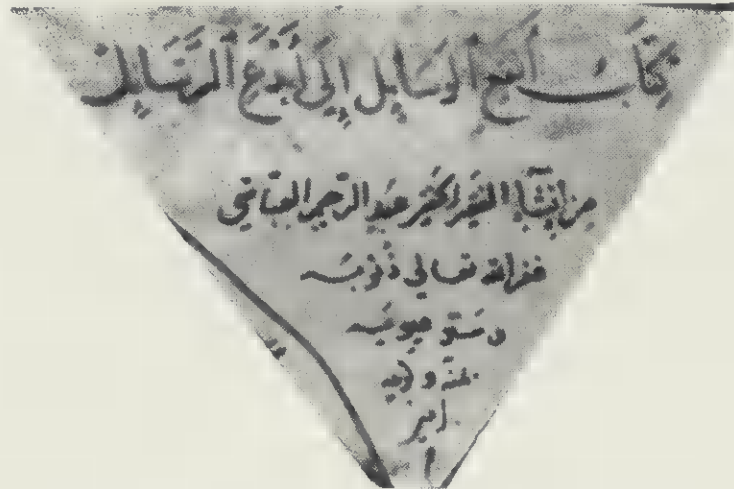 كتاب أنجع الوسايل إلى أبدع الرسايل
من إنشا الفقير الحقير عبد الرحيم العباسي
غفر الله تعالى ذنوبه
وستر عيوبه
بمنه و
امين